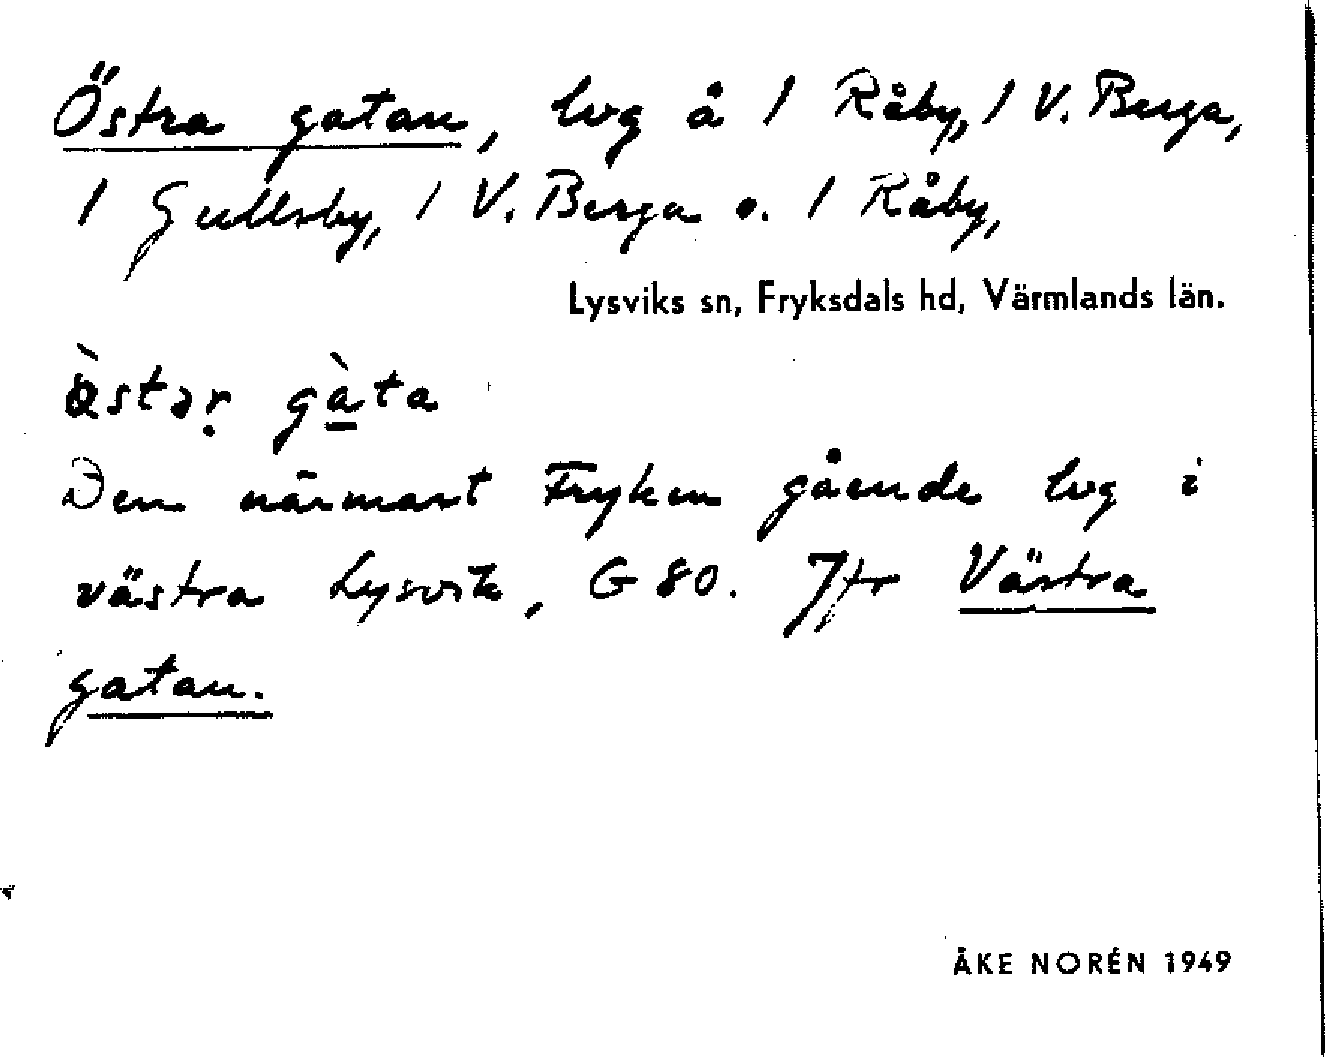 Östra gatan, lvg å 1 Råby, 1 V. Berga,
1 Gullsby, 1 V. Berga o. 1 Råby,
Lysviks sn, Fryksdals hd, Värmlands län.
gàta
Den närmast Fryken gående lvg i
västra Lysvik, G 80. Jfr Västra
gatan.
ÅKE NORÉN 1949